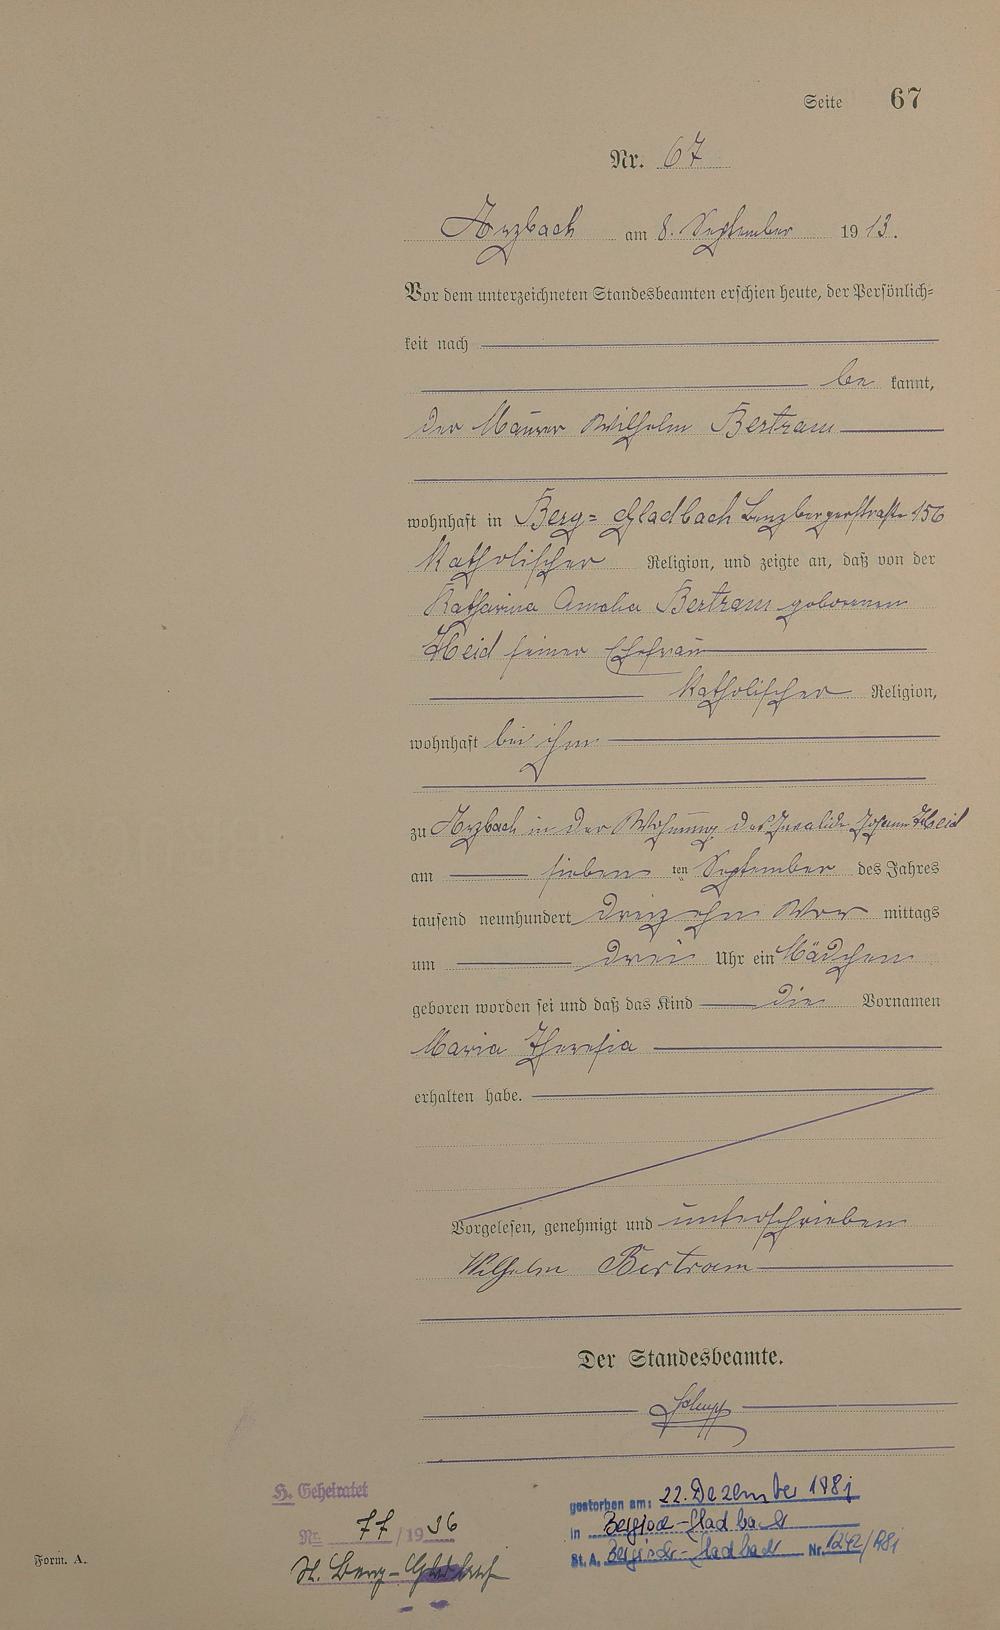 Seite 67
Nr. 67
Arzbach am 8. September 1913.
Vor dem unterzeichneten Standesbeamten erschien heute, der Persönlich=
keit nach
be kannt,
der Maurer Wilhelm Bertram
wohnhaft in Berg= Gladbach Benzbergerstraße 156
katholischer Religion, und zeigte an, daß von der
Katharina Amalia Bertram geborenen
Heid seiner Ehefrau
katholischer Religion,
wohnhaft bei ihm
zu Arzbach in der Wohnung des Invalide Johann Heid
am sieben ten September des Jahres
tausend neunhundert dreizehn Vor mittags
um drei Uhr ein Mädchen
geboren worden sei und daß das Kind die Vornamen
Maria Theresia
erhalten habe.
Vorgelesen, genehmigt und unterschrieben
Wilhelm Bertram
Der Standesbeamte.
H. Geheiratet
Nr. 77/1936
St. Berg-Gladbach
gestorben am: 22. Dezember 1981
in Bergisch-Gladbach
St. A. Bergisch-Gladbach Nr. 1242/1981
Form. A.